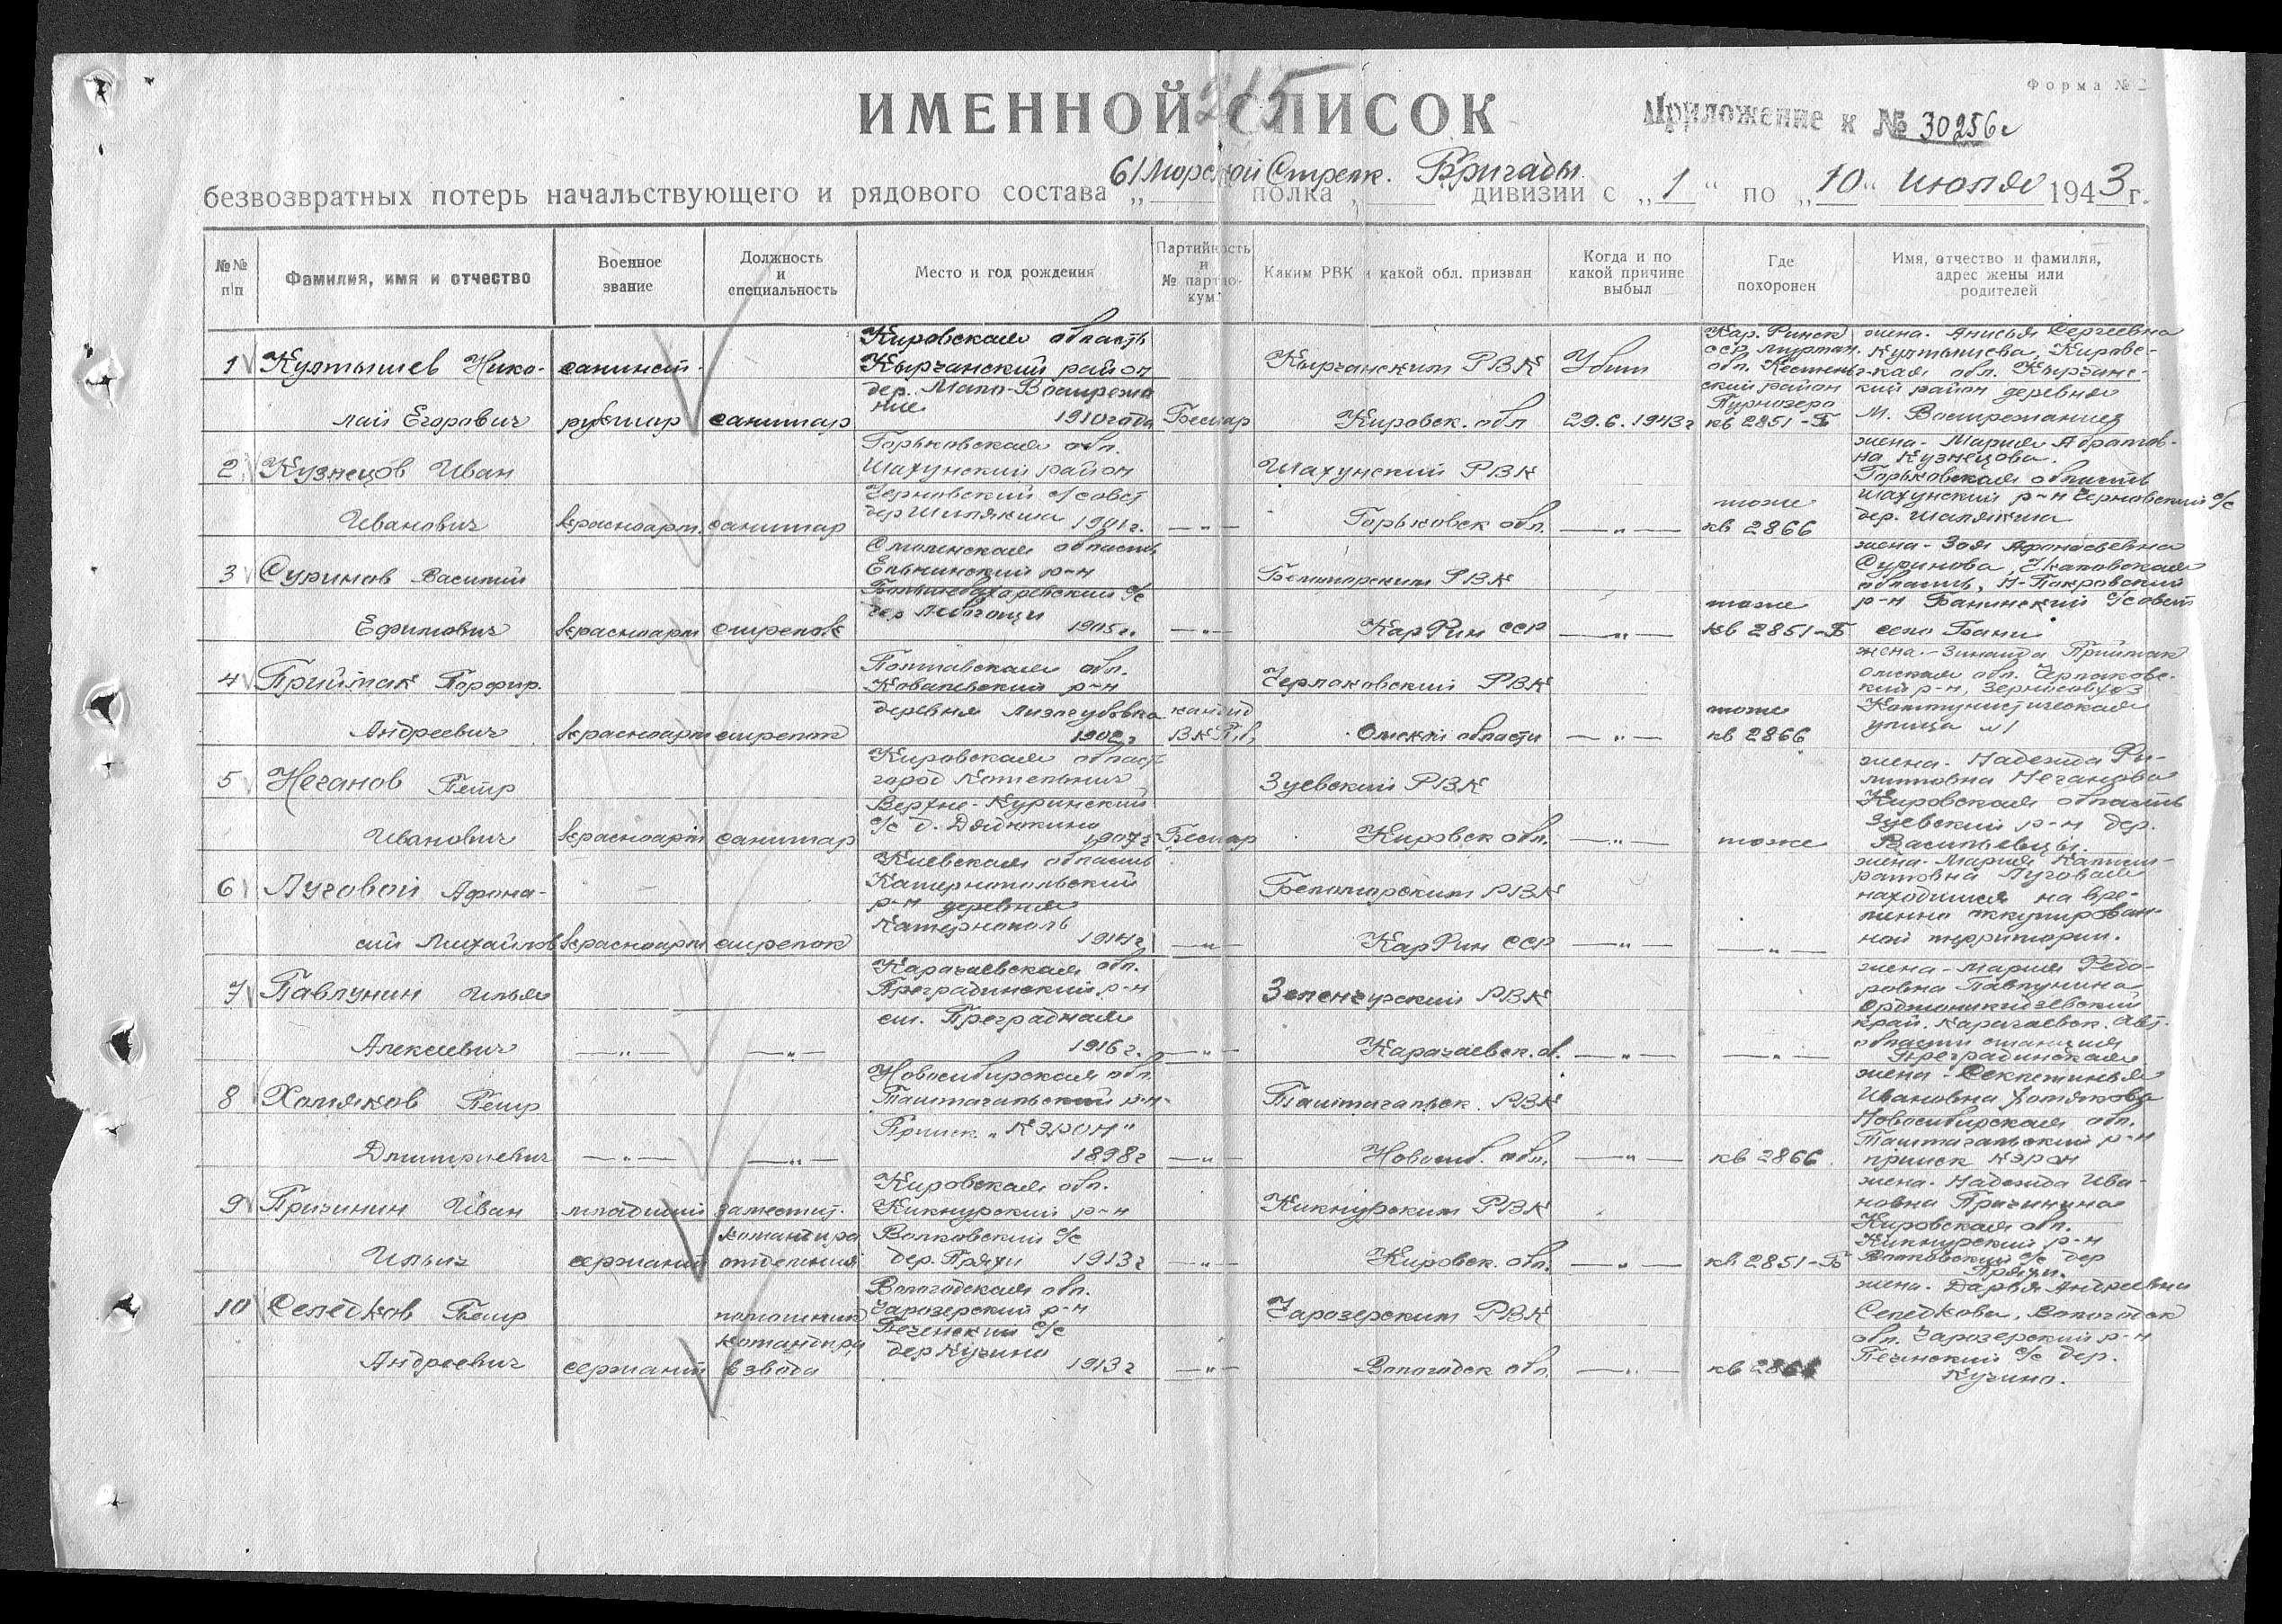 Форма № 2
215
ИМЕННОЙ СПИСОК
Приложение к № 30256с
61 Морской Стрелк. Бригады
безвозвратных потерь начальствующего и рядового состава „ " полка „ " дивизии с „1" по „10" июля 1943 г.
№№ п/п
Фамилия, имя и отчество
Военное звание
Должность и специальность
Место и год рождения
Партийность и № партдокум.
Каким РВК и какой обл. призван
Когда и по какой причине выбыл
Где похоронен
Имя, отчество и фамилия, адрес жены или родителей
1 Култышев Николай Егорович
санинструктор
санитар
Кировская область
Кырчанский район
дер. Мало-
1910 года
Беспар
Кырчанским РВК
Кировск. обл
Убит
29.6.1943г
Кар. Финск
сср
обл. Кестеньг-
ский район
кв 2851-Б
жена - Анисья Сергеевна
Култышева, Кировс-
кая обл. Кырчанс-
кий район деревня
2 Кузнецов Иван
Иванович
красноарм. санитар
Горьковская обл.
Шахунский район
Черновский с/совет
дер Шалякина 1901г.
— " —
Шахунский РВК
Горьковск обл.
— " —
тоже
кв 2866
жена - Мария
на Кузнецова.
Горьковская область
Шахунский р-н Черновский с/с
дер. Шалякина
3 Суринов Василий
Ефимович
красноарм стрелок
Смоленская область
Ельнинский р-н
1905г.
— " —
Беломорским РВК
КарФин ССР
— " —
тоже
кв 2851-Б
жена - Зоя Афонасьевна
Суринова, Чкаловская
область, Н-Покровский
р-н Банинский с/совет
село Бани
4 Приймак Порфир.
Андреевич
красноарм стрелок
Полтавская обл.
р-н
деревня
1902г
кандид
ВКП(б)
Черлаковский РВК
Омской области
— " —
тоже
кв 2866
жена - Зинаида Приймак
Омская обл. Черлаковс-
кий р-н, Зерносовхоз
Коммунистическая
улица
5 Неганов Петр
Иванович
красноарм санитар
Кировская область
город Котельнич
Верхне-Куринский
с/с д.
1907г
Беспар
Зуевский РВК
Кировск обл.
— " —
тоже
жена - Надежда Фи-
липповна Неганова
Кировская область
Зуевский р-н дер.
6 Луговой Афона-
сий Михайлов
красноарм стрелок
Киевская область
Катеринопольский
р-н деревня
1914г
— " —
Беломорским РВК
КарФин ССР
— " —
— " —
жена - Мария
Луговая
находишся на вре-
менно оккупирован-
ной территории.
7 Павлунин Илья
Алексеевич
— " —
— " —
Карачаевская обл.
Преградинский р-н
ст. Преградная
1916г.
— " —
Зеленчукский РВК
Карачаевск. об.
— " —
— " —
жена - Мария Федо-
ровна Павлунина
Орджоникидзевский
край. Карачаевск. Авт.
области станция
Преградинская
8 Хомяков Петр
Дмитриевич
— " —
— " —
Новосибирская обл.
Таштагальский р-н
Прииск „Кэрон"
1898г
— " —
Таштагальск. РВК
Новосиб. обл.
— " —
кв 2866
жена -
Ивановна Хомякова
Новосибирская обл.
Таштагальский р-н
прииск Кэрон
9 Причинин Иван
Ильич
младший сержант
заместит. командира отделения
Кировская обл.
Кикнурский р-н
Волковский с/с
дер. Пряхи 1913г
— " —
Кикнурским РВК
Кировск. обл.
— " —
кв 2851-Б
жена - Надежда Ива-
новна Причинина
Кировская обл.
Кикнурский р-н
Волковский с/с дер
Пряхи.
10 Селедков Петр
Андреевич
сержант
помошник командира взвода
Вологодская обл.
Чарозерский р-н
Печенский с/с
дер Кучино 1913г
— " —
Чарозерским РВК
Вологодск обл
— " —
кв 2866
жена - Дарья Андреевна
Селедкова, Вологодск
обл. Чарозерский р-н
Печенский с/с дер.
Кучино.